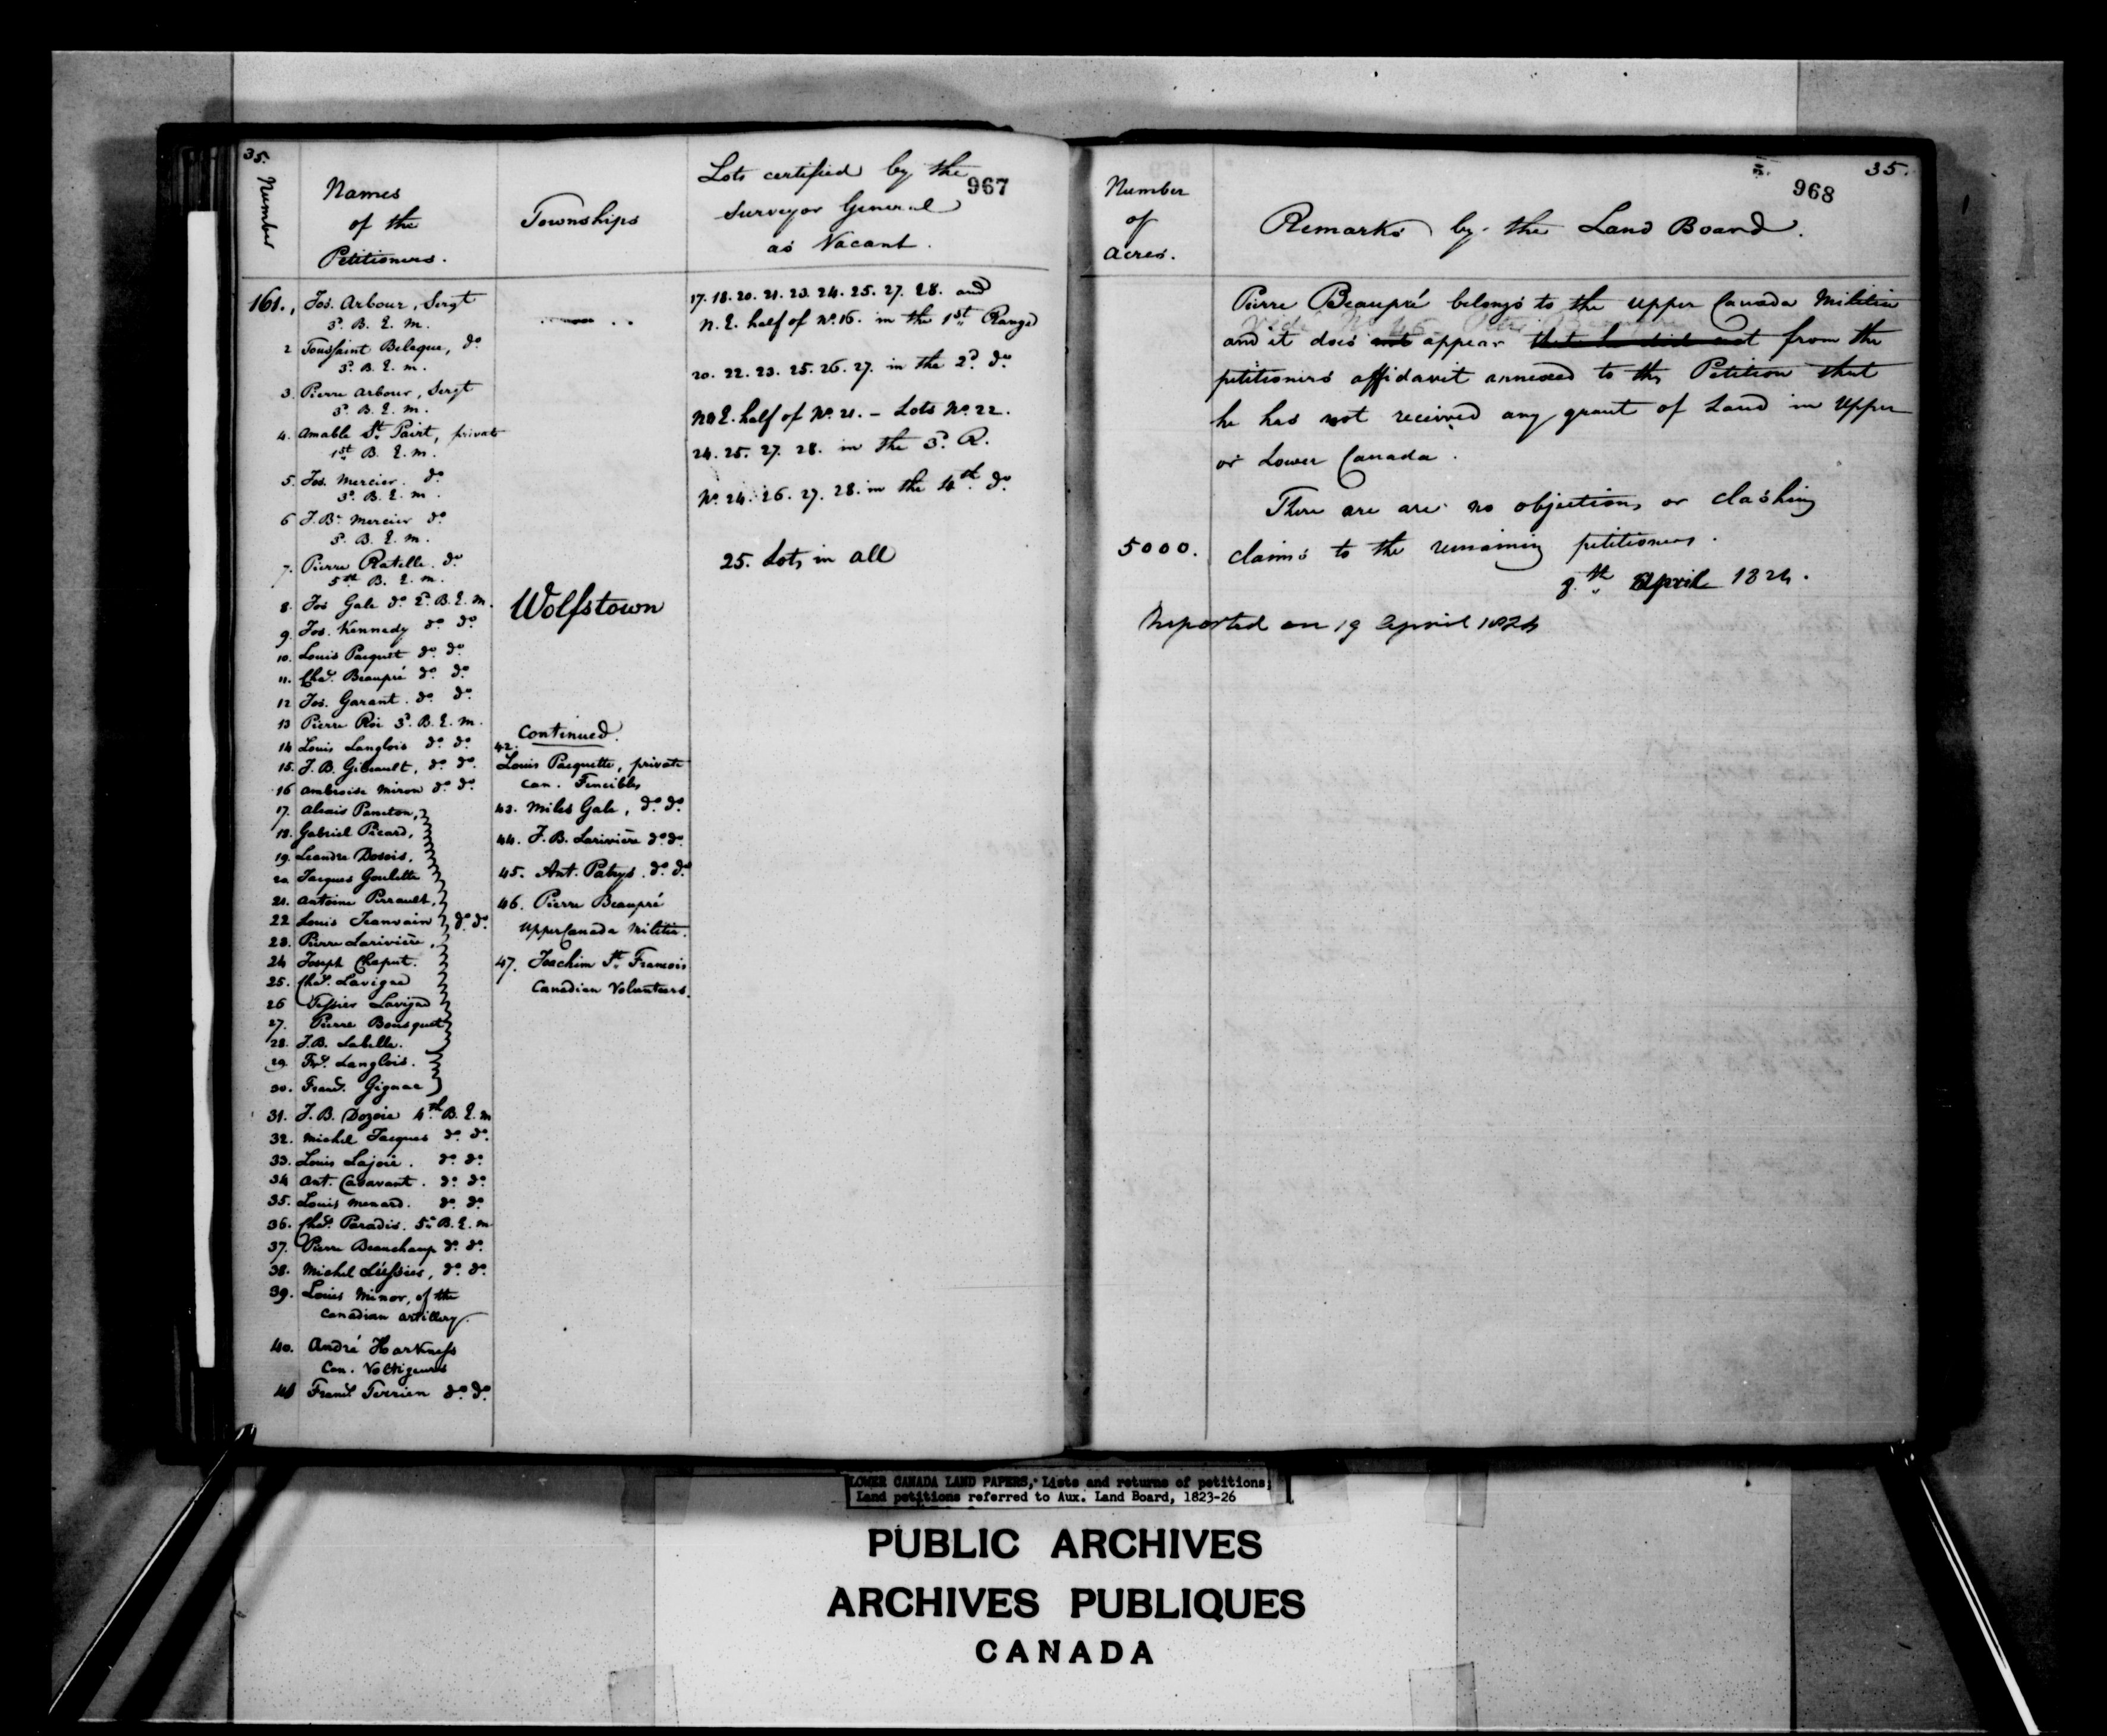 35.
967
Number
Names
of the
Petitioners.
Townships
Lots certified by the
Surveyor General
as Vacant.
161., Jos. Arbour, Sergt
3d. B. E. M.
2 Toussaint Belaque, do
3d. B. E. M.
3. Pierre Arbour, Sergt
3d. B. E. M.
4. Amable St. Pairt, private
1st B. E. M.
5. Jos. Mercier. do
3d. B. E. M.
6 J. Bte Mercier do
3d. B. E. M.
7. Pierre Ratelle. do
5th B. E. M.
8. Jos Gale do 2d. B. E. M.
9. Jos. Kennedy do do
10. Louis Paquet do do
11. Chas. Beaupré do do
12 Jos. Garant. do do
13 Pierre Roi 3d. B. E. M.
14 Louis Langlois do do
15. J. B. Gibeault, do do
16 Ambroise Miron do do
17. Alexis Paneton,
18. Gabriel Picard,
19. Leandre Dosois,
20. Jacques Goulette
21. Antoine Perrault,
22 Louis Jeanvain do do
23. Pierre Larivière,
24 Joseph Chaput.
25. Chas. Lavigne
26 Tessier Lavigne
27. Pierre Bousquet
28. J.B. Labelle.
29 Frs. Langlois.
30. Frans. Gignac
31. J. B. Dozois 4th B. E. M
32. Michel Jacques do do
33. Louis Lajoie. do do
34 Ant. Casavant. do do
35. Louis Menard. do do
36. Chas. Paradis. 5th B. E. M
37. Pierre Beauchamp do do
38. Michel Lussier, do do
39. Louis Minor, of the
Canadian Artillery.
40. André Harkness
Can. Voltigeurs
41 Frans. Terrien do do
Wolfstown
Continued.
42.
Louis Paquette, private
Can. Fencibles
43. Miles Gale, do do
44. J. B. Larivière do do
45. Ant. Patrys. do do
46. Pierre Beaupré
Upper Canada Militia.
47. Joachim St. Francois
Canadian Volunteers.
17. 18. 20. 21. 23. 24. 25. 27. 28. and
N. E. half of No. 16. in the 1st Range
20. 22. 23. 25. 26. 27. in the 2d do
N. E. half of No. 21. – Lots No. 22.
24. 25. 27. 28. in the 3d. R.
No. 24. 26. 27. 28. in the 4th do
25. Lots in all
35.
968
Number
of
Acres.
Remarks by the Land Board.
Pierre Beaupré belongs to the Upper Canada Militia
and it does not appear that he did not from the
petitioners affidavit annexed to the Petition that
he has not received any grant of Land in Upper
or Lower Canada.
There are are no objections or clashing
5000. claims to the remaining petitioners.
8th April 1824.
Reported on 19 April 1824
LOWER CANADA LAND PAPERS, Lists and returns of petitions;
Land petitions referred to Aux. Land Board, 1823-26
PUBLIC ARCHIVES
ARCHIVES PUBLIQUES
CANADA